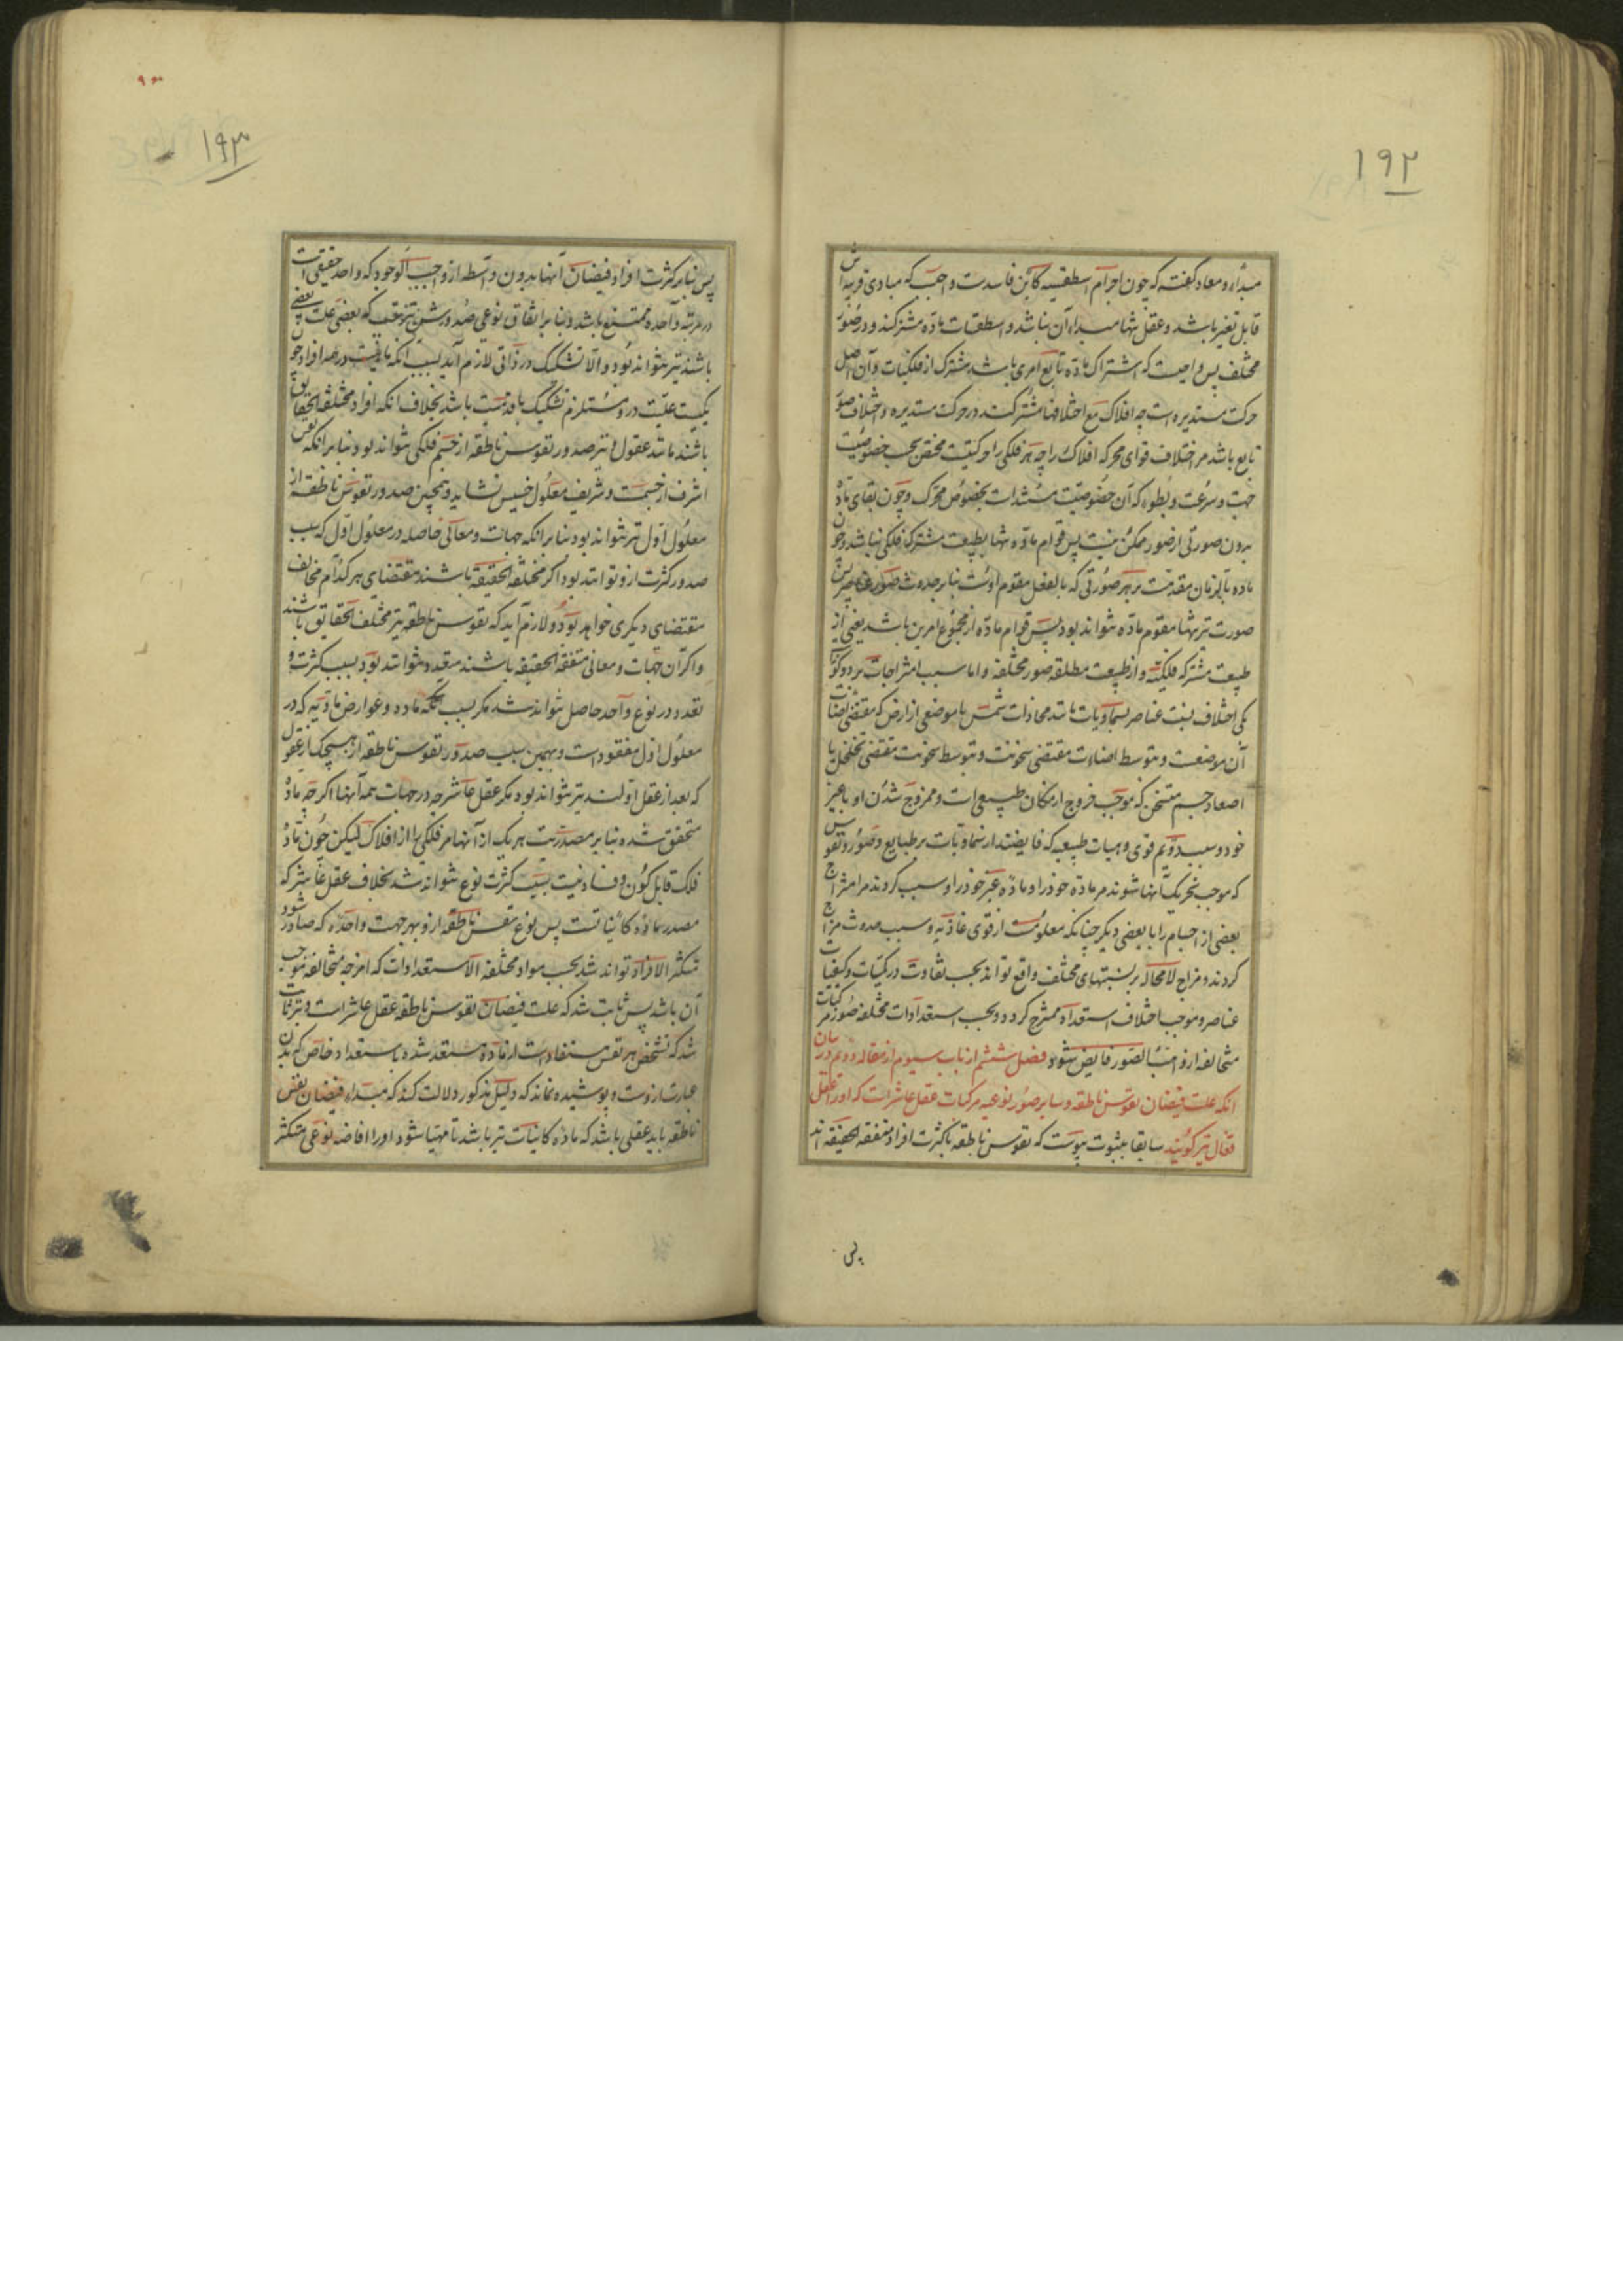 ۱۹۲
مبداء و معاد گفته که چون اجرام اسطقسیه کائن فاسدست واجب که مبادی قریبه اش
قابل تغیر باشد و عقل تنها مبداء آن نباشد و اسطقسات ماده مشترکند و در صور
مختلف پس واجبست که اشتراک ماده تابع امری باشد مشترک از فلکیات و آن اصل
حرکت مستدیره است چه افلاک مع اختلافها مشترکند در حرکت مستدیره و اختلاف صور
تابع باشد مر اختلاف قوای محرکه افلاک را چه هر فلکی را حرکتیست مختص بحسب خصوصیت
جهت و سرعت و بطوء که آن خصوصیت مستندات بخصوص محرک و چون بقای ماده
بدون صورتی از صور ممکن نیست پس قوام ماده تنها بطبیعت مشترکه فلکی نباشد و چون
ماده بالزمان مقدمست بر هر صورتی که بالفعل مقوم اوست بنابر حدوث صور عناصر پس
صورت نیز تنها مقوم ماده نتواند بود پس قوام ماده از مجموع امرین باشد یعنی از
طبیعت مشترکه فلکیه و از طبیعت مطلقه صور مختلفه و اما سبب امتزاجات بر دو گونه
یکی اختلاف نسبت عناصر بسماویات مانند محاذات شمس با موضعی از ارض که مقتضی اضائت
آن موضعست و بتوسط اضائت مقتضی سخونت و بتوسط سخونت مقتضی تخلخل یا
اصعاد جسم متسخن که موجب خروج از مکان طبیعی است و ممزوج شدن او با غیر
خود و سبب دویم قوی و هیات طبیعیه که فایضند از سماویات بر طبایع و صور و نفوس
که موجب تحریک آنها شوند مر ماده خود را و ماده غیر خود را و سبب گردند مر امتزاج
بعضی از اجسام را با بعضی دیگر چنانکه معلومست از قوی غاذیه و سبب حدوث مزاج
گردند و مزاج لامحاله بر نسبتهای مختلف واقع تواند بحسب تفاوت در کمیات و کیفیات
عناصر و موجب اختلاف استعداد ممتزج گردد و بحسب استعدادات مختلفه صور مرکبات
متخالفه از واهب الصور فایض شود فصل ششم از باب سیوم از مقاله دویم در بیان
انکه علت فیضان نفوس ناطقه و سایر صور نوعیه مرکبات عقل عاشر است که او را عقل
فعال نیز گویند سابقا بثبوت پیوست که نفوس ناطقه با کثرت افراد متفقه الحقیقه اند
پس
۱۹۳
پس بنابر کثرت افراد فیضان آنها بدون واسطه از واجب الوجود که واحد حقیقی است
در مرتبه واحده ممتنع باشد و بنابر اتفاق نوعی صدورش بترتیب که بعضی علت بعضی
باشند نیز نتواند بود و الا تشکیک در ذاتی لازم آید بسبب آنکه ماهیت در عدد افراد چون
یکیست علیت در و مستلزم تشکیک باقدمیت باشد بخلاف انکه افراد مختلفه الحقایق
باشند مانند عقول و نیز صدور نفوس ناطقه از جسم فلکی نتواند بود بنابر انکه نفس
اشرف از جسمست و شریف معلول خسیس نشاید و همچنین صدور نفوس ناطقه از
معلول اول نیز نتواند بود بنابر انکه جهات و معانی حاصله در معلول اول که سبب
صدور کثرت ازو توانند بود اگر مختلفه الحقیقه باشند مقتضای هر کدام مخالف
مقتضای دیگری خواهد بود و لازم آید که نفوس ناطقه نیز مختلف الحقایق باشند
و اگر آن جهات و معانی متفقه الحقیقه باشند متعدد نتوانند بود بسبب کثرت و
تعدد در نوع واحد حاصل نتواند شد مگر بسبب تکه ماده و عوارض مادیه که در
معلول اول مفقود است و بهمین سبب صدور نفوس ناطقه از هیچیک از عقول
که بعد از عقل اولند نیز نتواند بود مگر عقل عاشر چه در جهات همه آنها اگرچه ماده
متحقق شده بنابر مصدریت هر یک از آنها مر فلکی را از افلاک لیکن چون ماده
فلک قابل کون و فساد نیست بسبب کثرت نوع نتواند شد بخلاف عقل عاشر که
مصدر ماده کائناتست پس نوع نفس ناطقه ازو بهر جهت واحده که صادر شود
متکثر الافراد تواند شد بحسب مواد مختلفه الاستعدادات که امزجه متخالفه موجب
آن باشد پس ثابت شد که علت فیضان نفوس ناطقه عقل عاشر است و نیز ثابت
شد که تشخص هر نفس مستفاد است از ماده مستعد شده باستعداد خاص که بدن
عبارت ازوست و پوشیده نماند که دلیل مذکور دلالت کند که مبداء فیضان نفس
ناطقه باید عقلی باشد که ماده کائنات نیز باشد تا مهیا شود او را افاضه نوعی متکثر